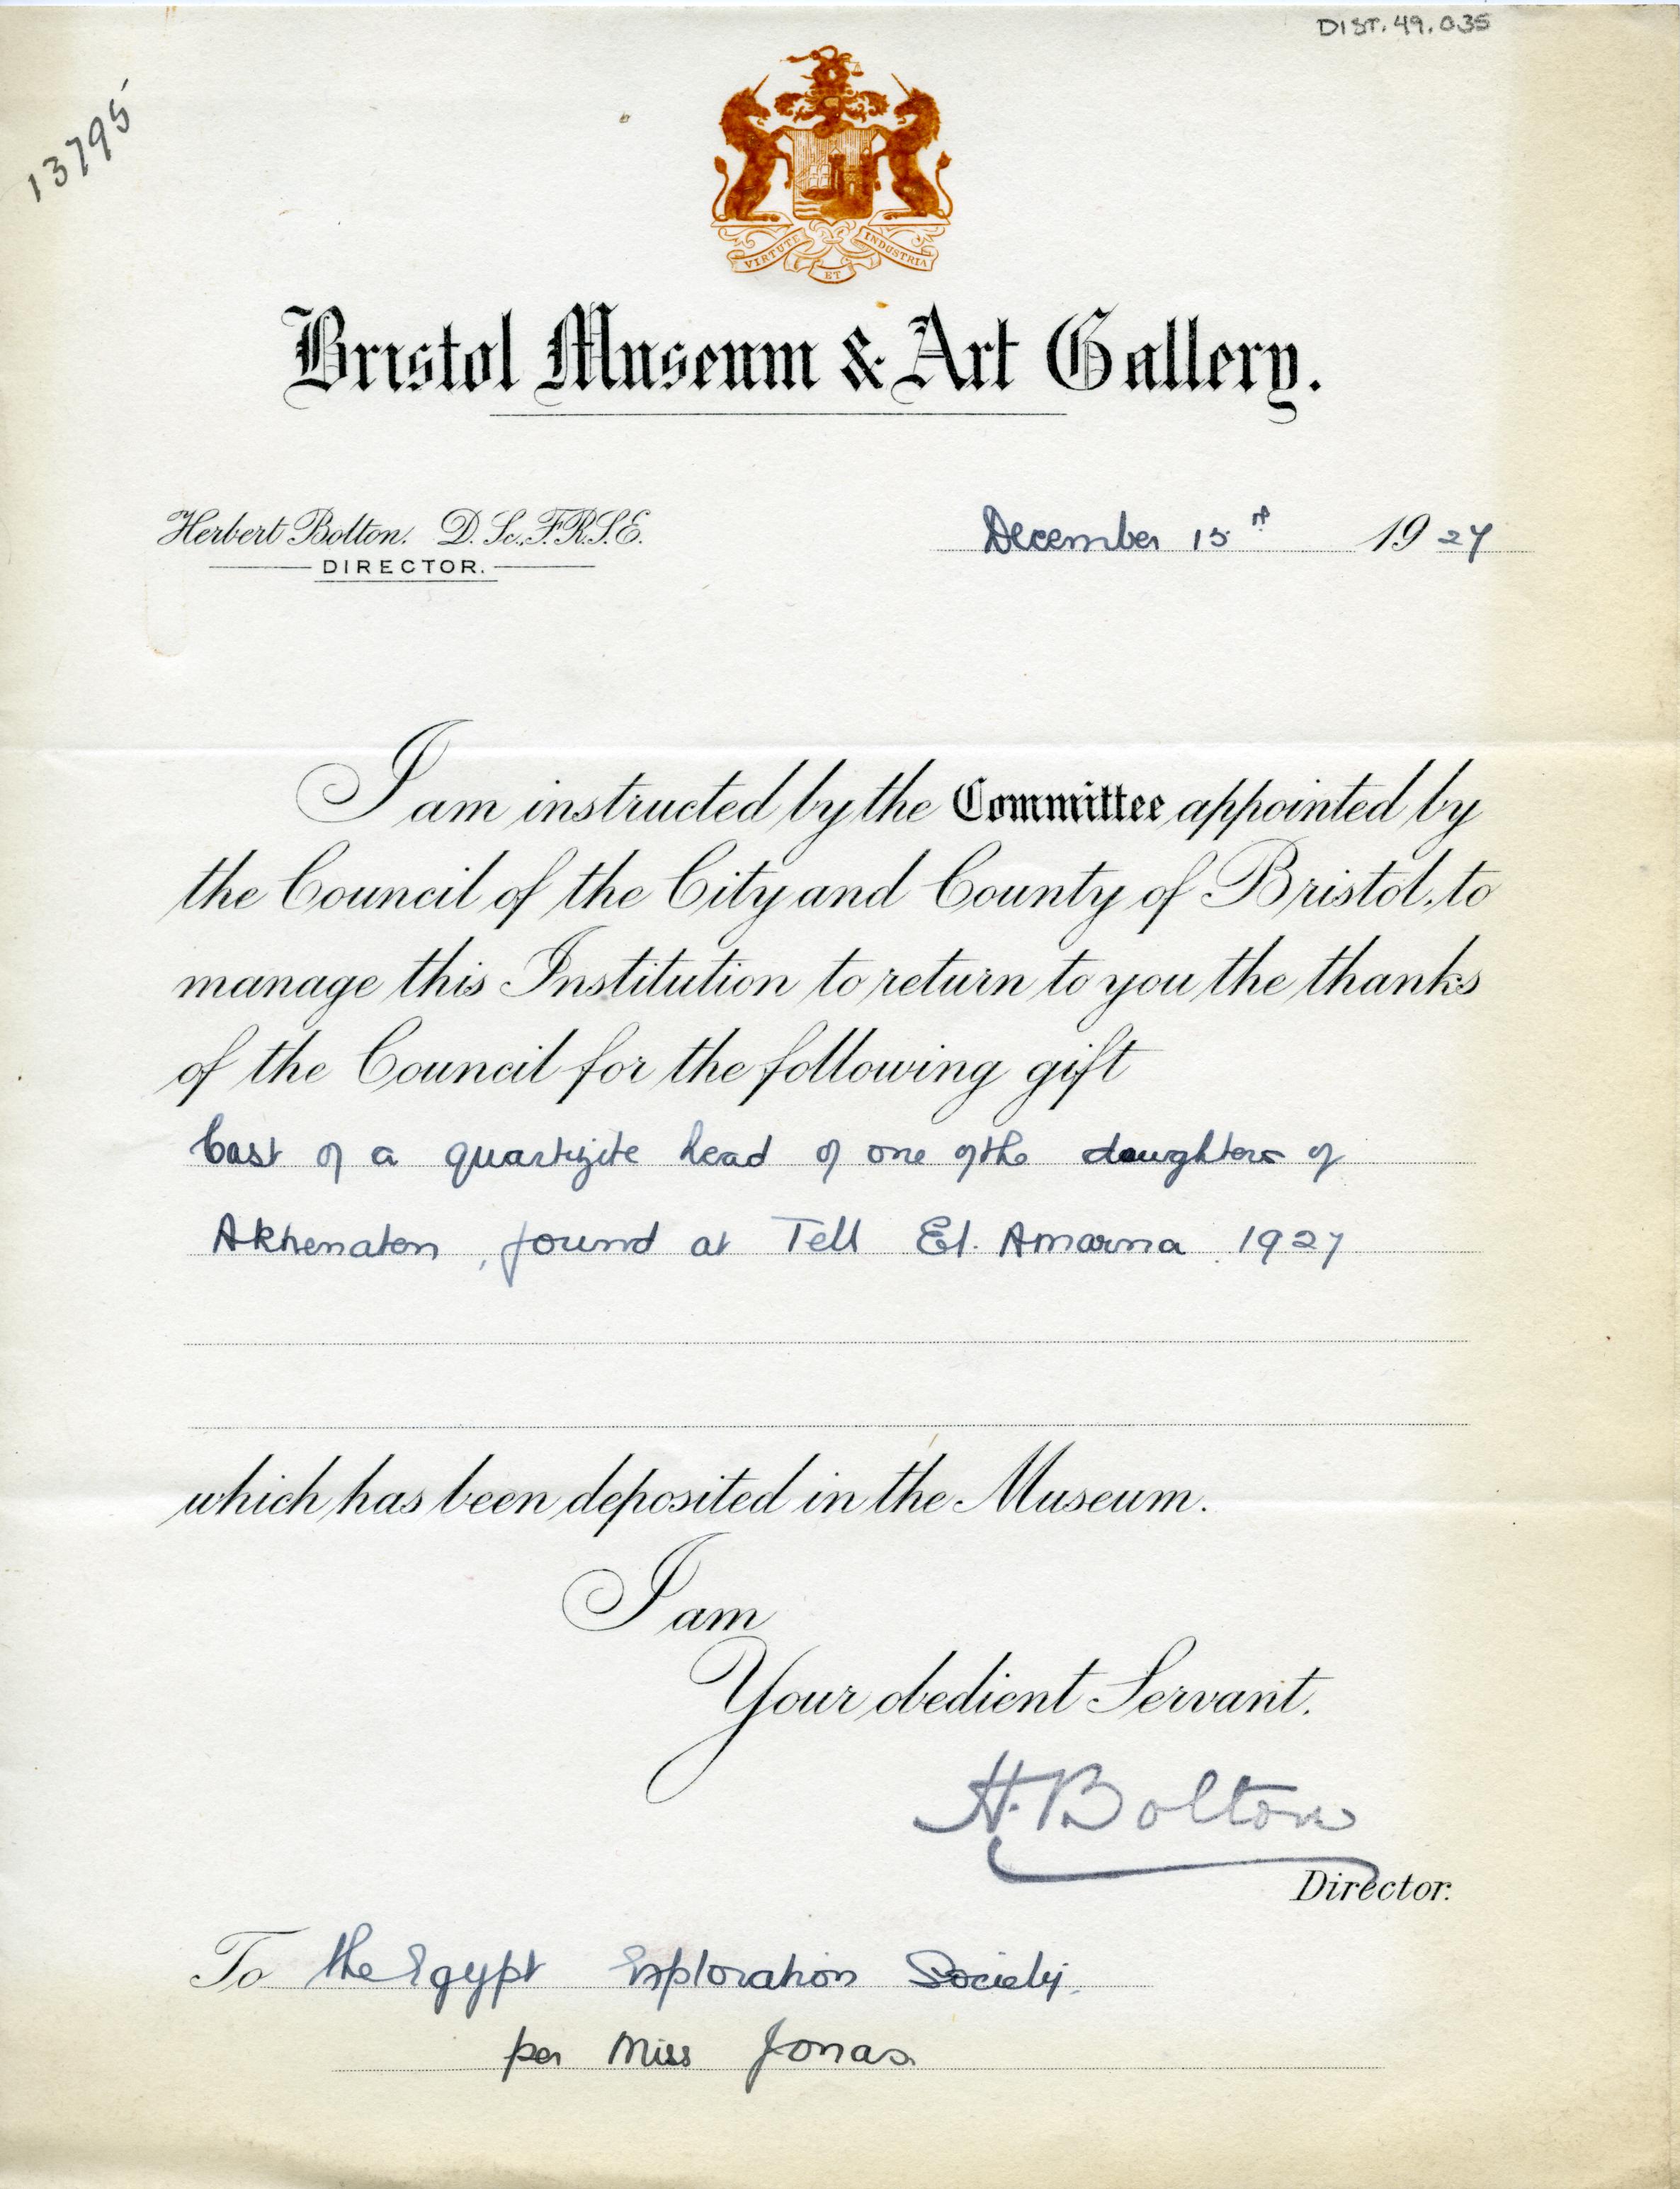 DIST.49.035
13795
VIRTUTE ET INDUSTRIA
Bristol Museum & Art Gallery.
Herbert Bolton. D.Sc., F.R.S.E.
DIRECTOR.
December 15 1927
I am instructed by the Committee appointed by
the Council of the City and County of Bristol, to
manage this Institution to return to you the thanks
of the Council for the following gift
Cast of a quartzite head of one of the daughters of
Akhenaten, found at Tell El. Amarna. 1927
which has been deposited in the Museum.
I am
Your obedient Servant.
H. Bolton
Director.
To the Egypt Exploration Society.
per Miss Jonas.